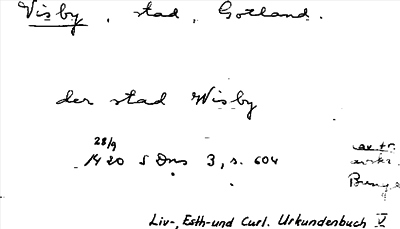 Visby, stad, Gotland.
der stad Wisby
28/9
1420 S Dns 3, s. 604
Liv-, Esth- und Curl. Urkundenbuch V